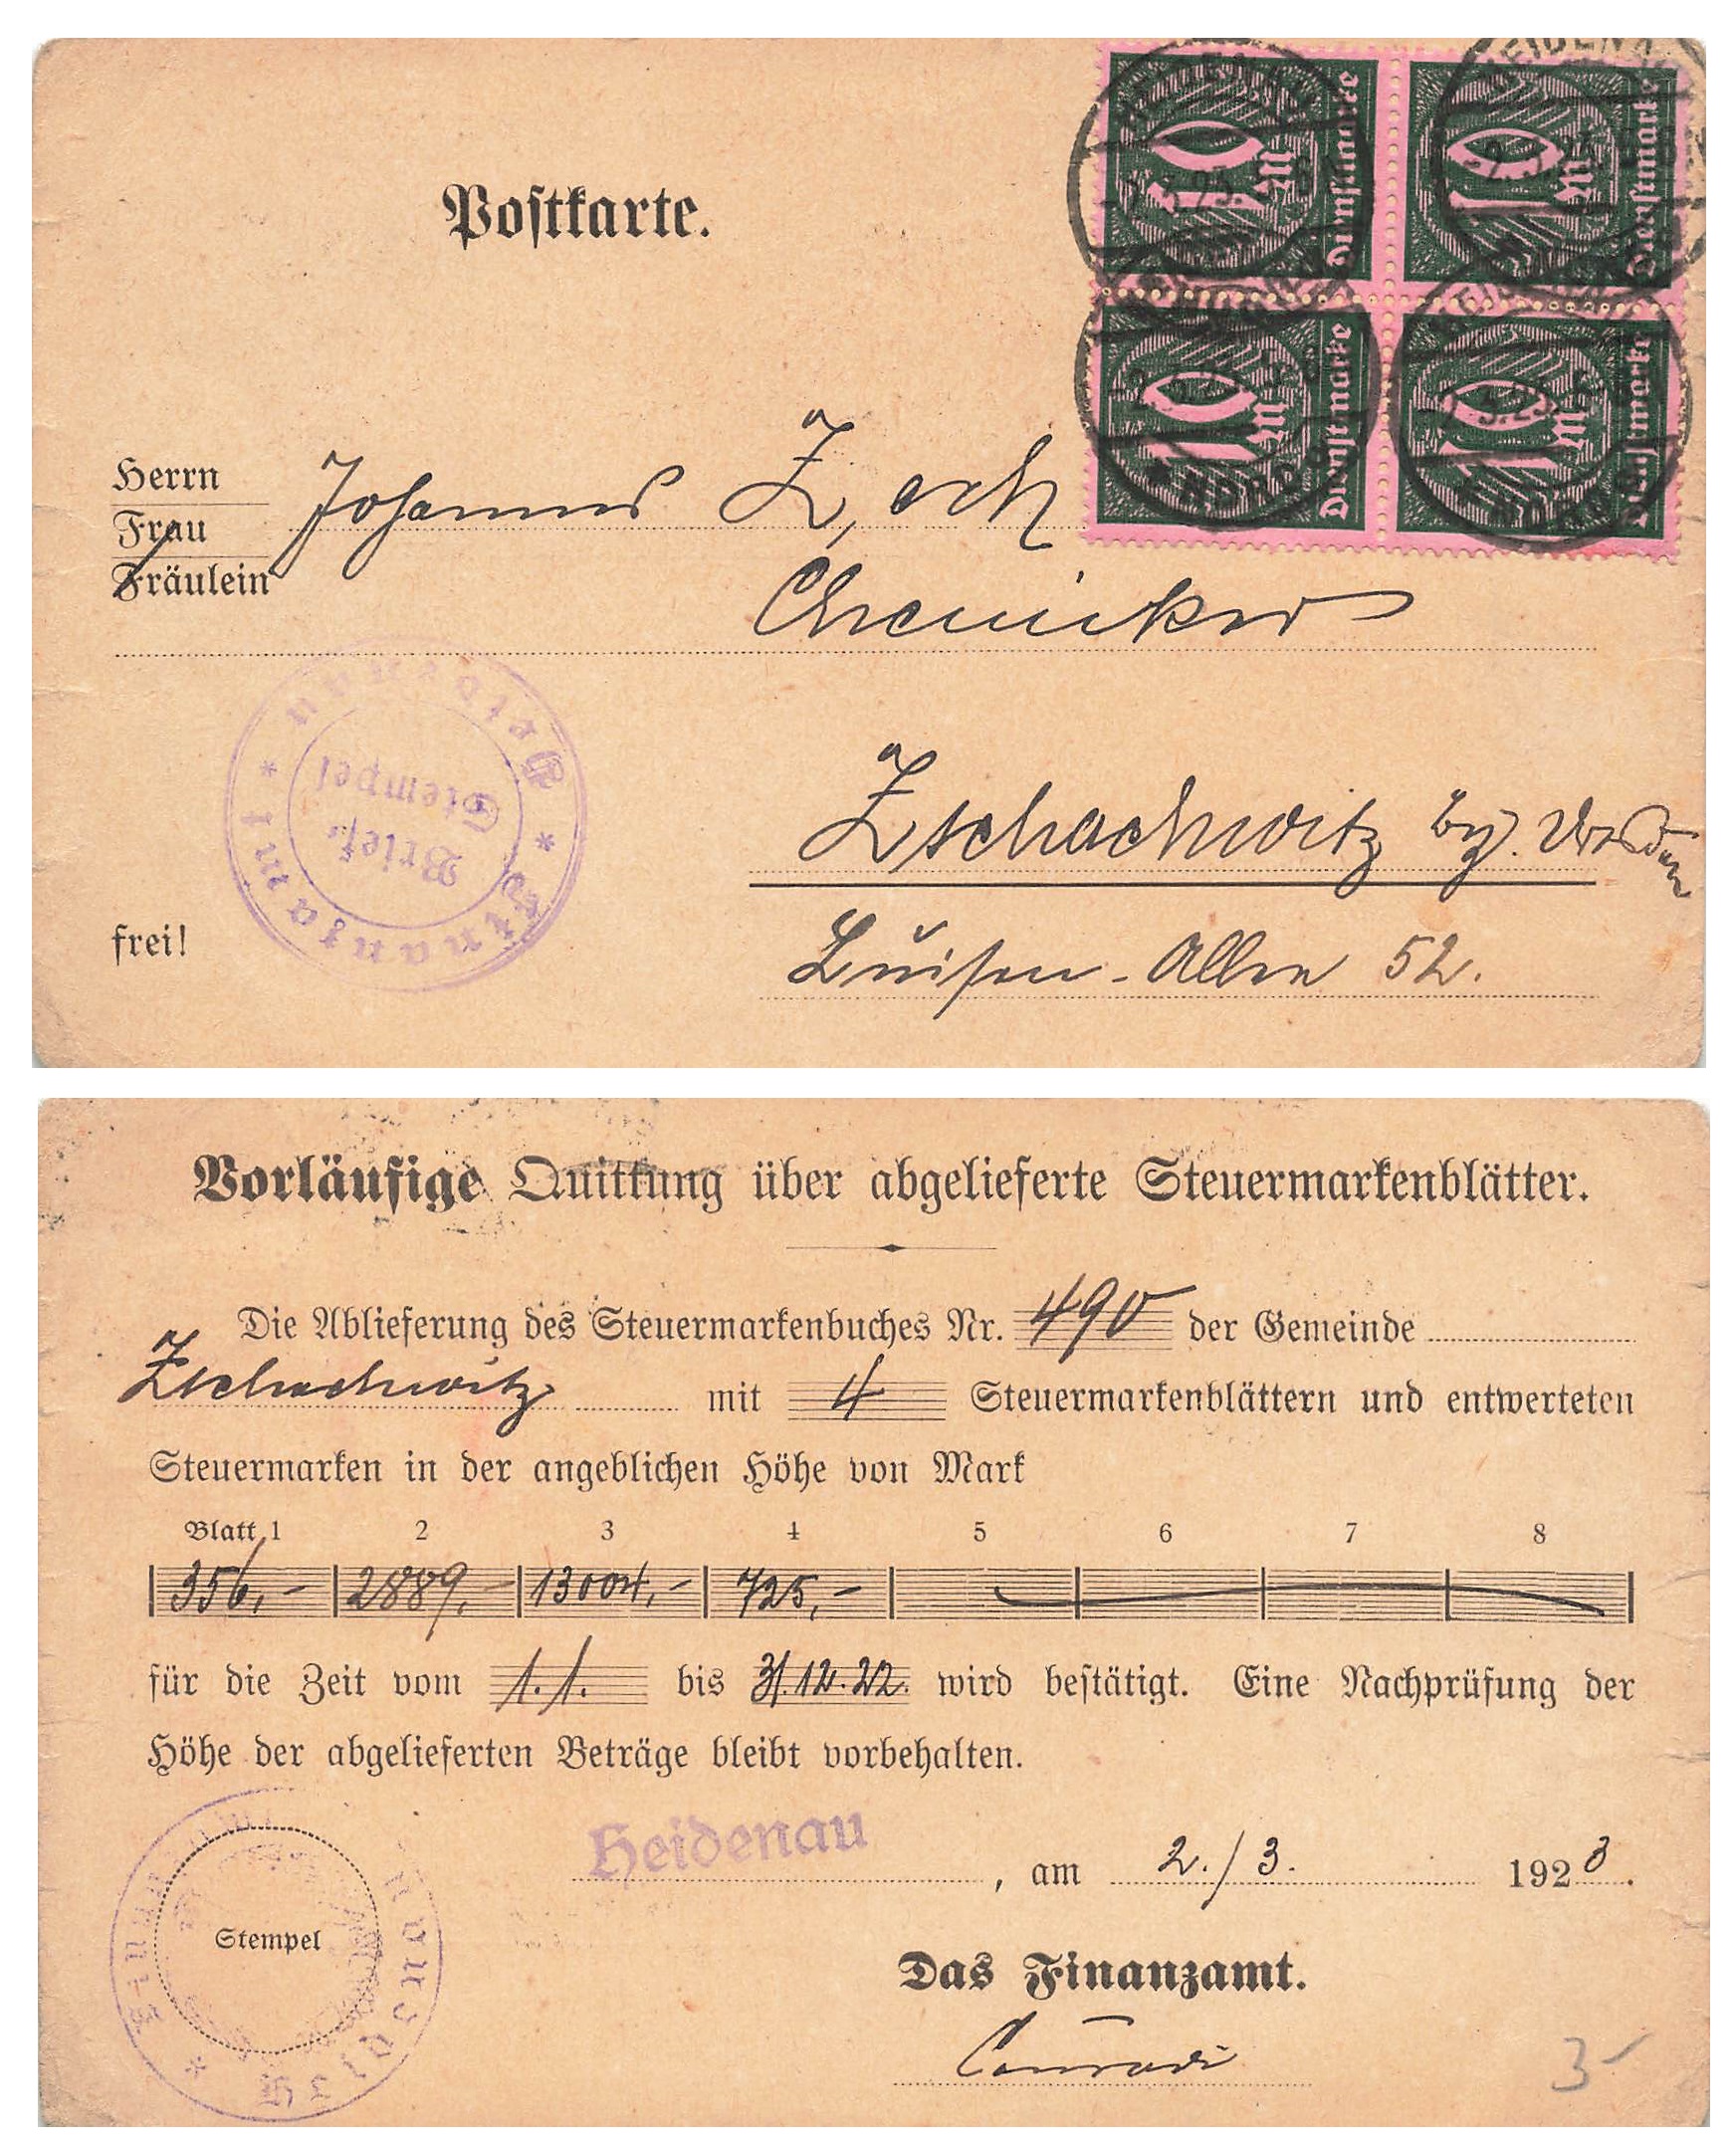 Postkarte.
10 M Dienstmarke
10 M Dienstmarke
10 M Dienstmarke
10 M Dienstmarke
HEIDENAU
Herrn
Frau
Fräulein
Johannes Zoch
Chemiker
Zschachwitz bz. Dresden
Luisen-Allee 52.
frei!
* Finanzamt * Heidenau
Brief-
Stempel
Vorläufige Quittung über abgelieferte Steuermarkenblätter.
Die Ablieferung des Steuermarkenbuches Nr. 490 der Gemeinde
Zschachwitz mit 4 Steuermarkenblättern und entwerteten
Steuermarken in der angeblichen Höhe von Mark
Blatt 1 2 3 4 5 6 7 8
356,- 2889,- 13004,- 725,-
für die Zeit vom 1.1. bis 31.12.22. wird bestätigt. Eine Nachprüfung der
Höhe der abgelieferten Beträge bleibt vorbehalten.
Heidenau, am 2./3. 1923.
Stempel
Finanzamt Heidenau *
Das Finanzamt.
Conradi
3-